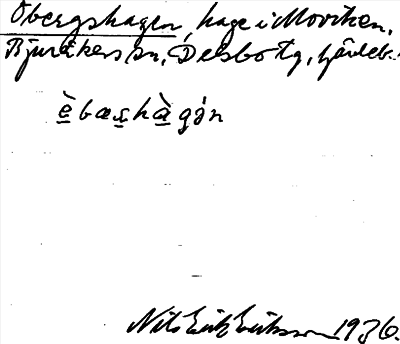 Obergshagen, hage i Moviken,
Bjuråkers sn, Delsbo tg,
èbæs̱hàgən
Nils Erik Eriksson 1936.